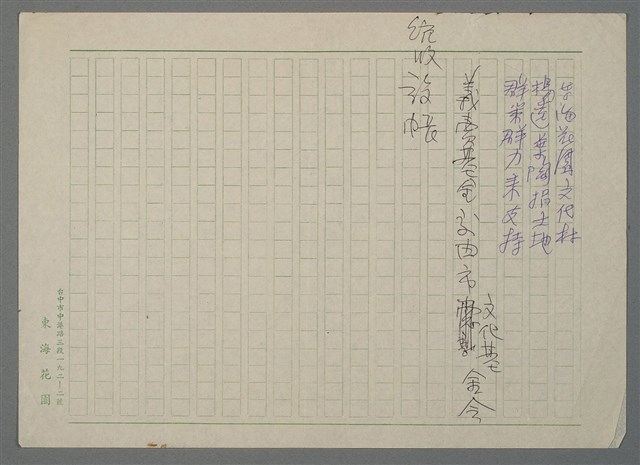 東海花園文化村
楊逵葉陶捐土地
群策群力来支持
義賣基金交由市文化基金会
統收設帳
東海花園
台中市中港路三段一九二–二號